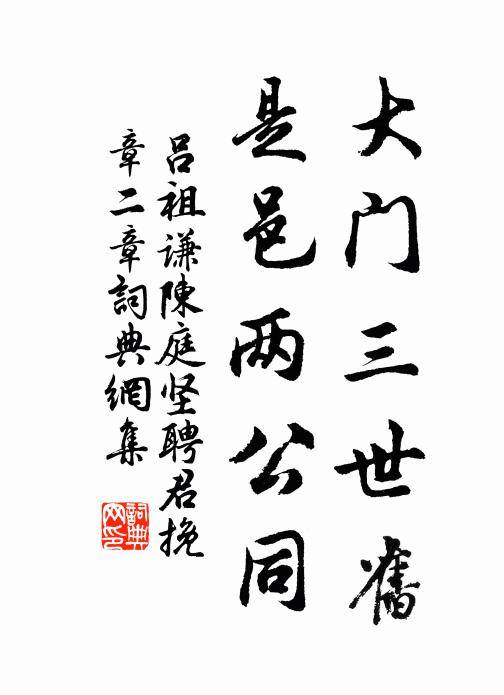 大门三世舊
是邑两公同
吕祖谦陳庭坚聘君挽
章二章詞典網集
詞典网印